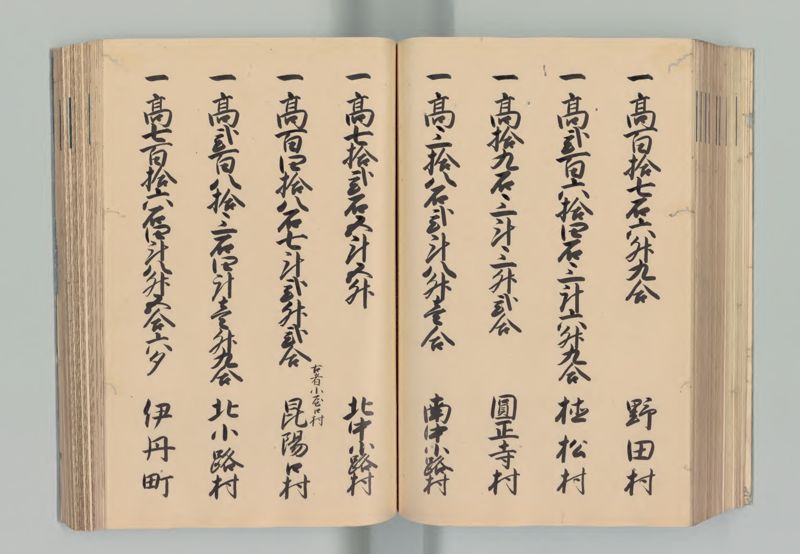 一 高百拾七石六升九合 野田村
一 高弐百六拾四石三斗六升九合 植松村
一 高拾九石三斗三升弐合 圓正寺村
一 高三拾八石弐斗八升壱合 南中小路村
一 高七拾弐石五斗五升 北中小路村
一 高百四拾八石七斗弐升弐合 昆陽口村
古者小屋口村
一 高弐百八拾三石四斗壱升九合 北小路村
一 高七百拾六石四斗八升五合六夕 伊丹町